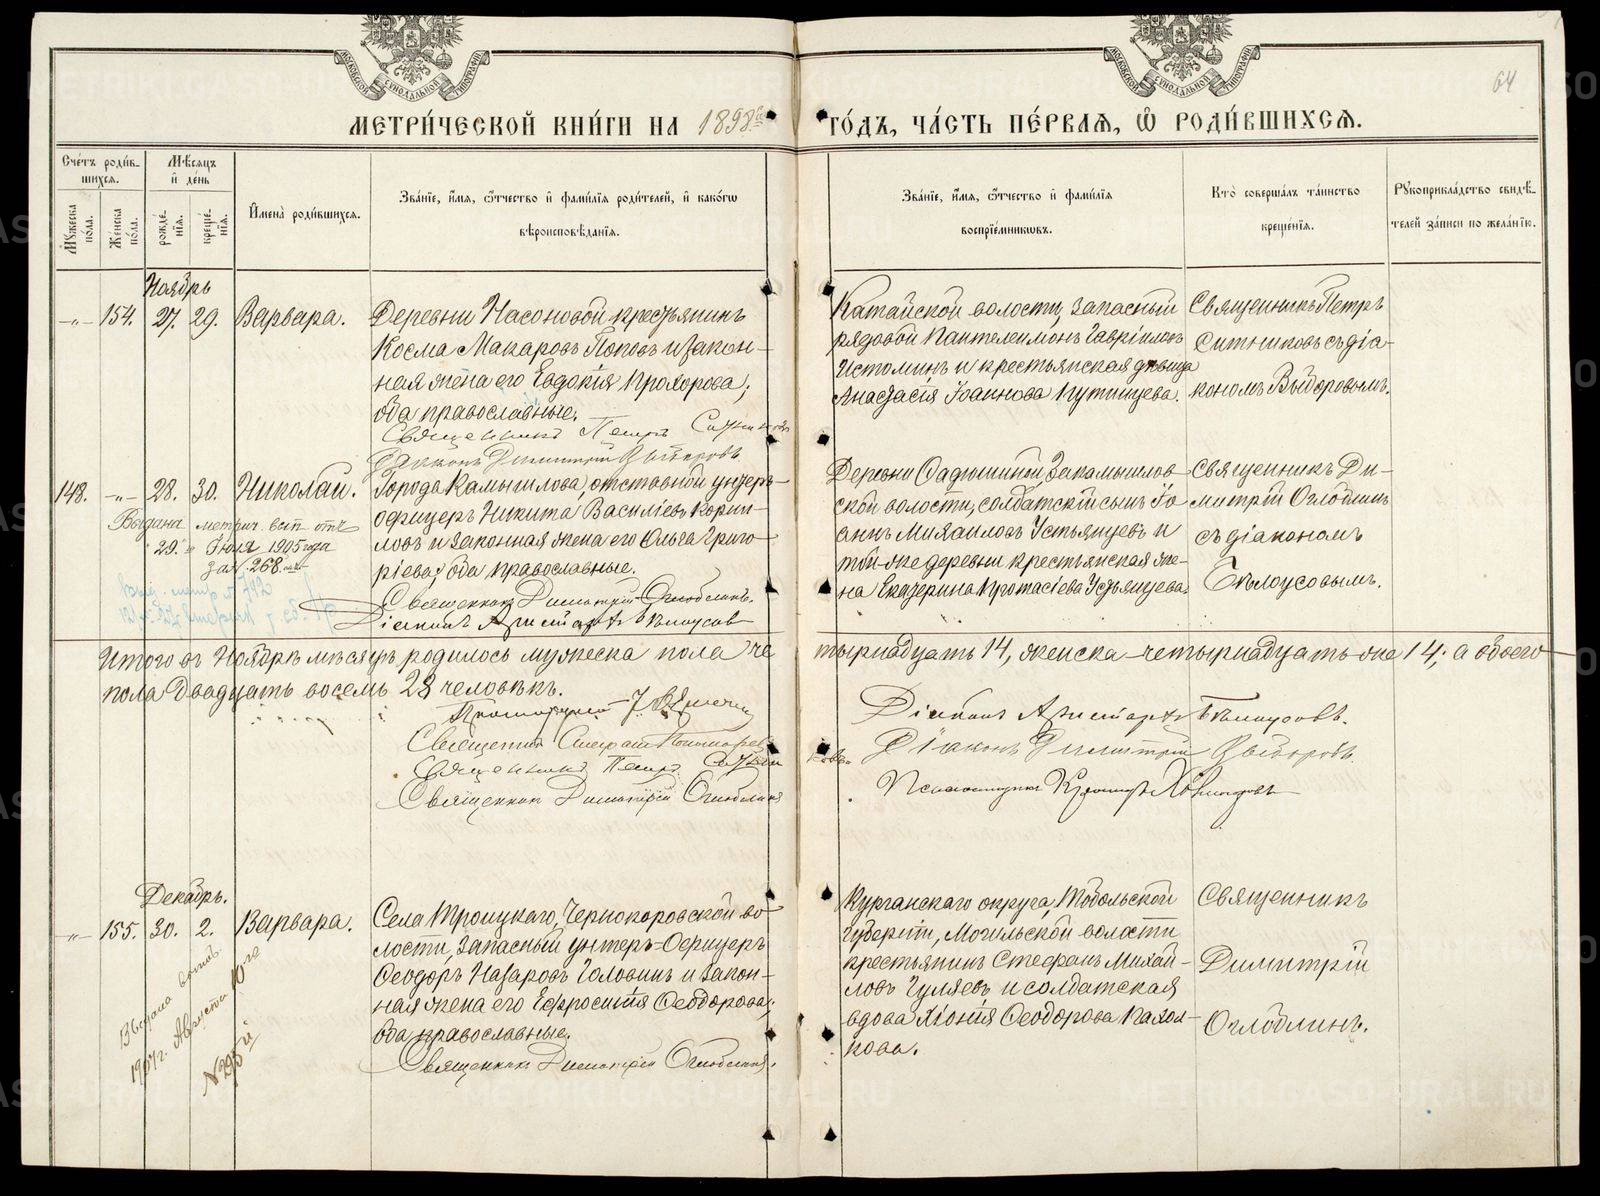 МОСКОВСКОЙ СѴНОДАЛЬНОЙ ТИПОГРАФІИ
МОСКОВСКОЙ СѴНОДАЛЬНОЙ ТИПОГРАФІИ
64
МЕТРИ́ЧЕСКОЙ КНИ́ГИ НА 1898й
ГО́ДЪ, ЧА́СТЬ ПЕ́РВАѦ, Ѡ҆ РОДИ́ВШИХСѦ.
Сче́тъ роди́в-
шихся.
Мꙋ́жеска по́ла.
Же́нска по́ла.
Мѣ́сяцъ и҆ де́нь
рожде́нїя.
креще́нїя.
И҆мена̀ роди́вшихся.
Зва́нїе, и҆́мя, ѻ҆́тчество и҆ фами́лїя роди́телей, и҆ како́гѡ
вѣроисповѣ́данїя.
Зва́нїе, и҆́мя, ѻ҆́тчество и҆ фами́лїя
воспрїе́мникѡвъ.
Кто̀ соверша́лъ та́инство
креще́нїя.
Рꙋкоприкла́дство свидѣ́-
телей за́писи по жела́нїю.
Ноябрь
-„- 154. 27. 29. Варвара.
Деревни Насоновой крестьянинъ
Косма Макаровъ Поповъ и закон-
ная жена его Евдокія Прохорова;
оба православные.
Священникъ Петръ Ситниковъ
Діаконъ Димитрій Выборовъ
Катайской волости, запасный
рядовой Пантелеимонъ Гавріиловъ
Истоминъ и крестьянская дѣвица
Анастасія Іоаннова Путинцева.
Священникъ Петръ
Ситниковъ съ діа-
кономъ Выборовымъ.
148. -„- 28. 30. Николай.
Города Камышлова, отставной унтеръ-
офицеръ Никита Василіевъ Корни-
ловъ и законная жена его Ольга Григо-
ріева; оба православные.
Священникъ Димитрій Оглоблинъ.
Діаконъ Аристархъ Бѣлоусовъ
Выдана метрич. вып. отъ
29. Іюля 1905 года
за № 268.
Деревни Закамышлов-
ской волости, солдатскій сынъ Іо-
аннъ Михаиловъ Устьянцевъ и
той-же деревни крестьянская же-
на Екатерина Протасіева Устьянцева.
Священникъ Ди-
митрій Оглоблинъ
съ діакономъ
Бѣлоусовымъ.
Итого въ Ноябрѣ мѣсяцѣ родилось мужеска пола че
тырнадцать 14, женска четырнадцать-же 14; а обоего
пола двадцать восемь 28 человѣкъ.
Священникъ Петръ Ситни
ковъ
Священникъ Димитрій Оглоблинъ
Діаконъ Аристархъ Бѣлоусовъ.
Діаконъ Димитрій Выборовъ.
Декабрь.
-„- 155. 30. 2. Варвара.
Села Троицкаго, Чернокоровской во
лости, запасный унтеръ-офицеръ
Ѳеодоръ Назаровъ Головинъ и закон-
ная жена его Евфросинія Ѳеодорова;
оба православные.
Священникъ Димитрій Оглоблинъ.
1907г. Августа 10го
№ 295й
Курганскаго округа, Тобольской
губерніи, Могильской волости
крестьянинъ Стефанъ Михай-
ловъ Гуляевъ и солдатская
вдова Хіонія Ѳеодорова Пахол-
кова.
Священникъ
Димитрій
Оглоблинъ.
METRIKI.GASO-URAL.RU